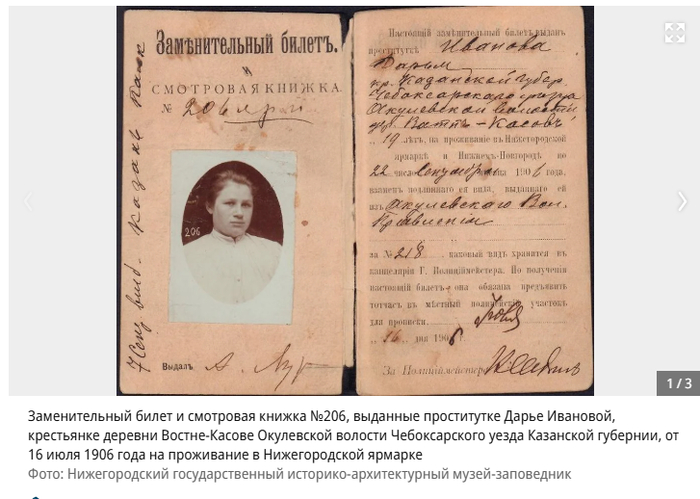 Замѣнительный билетъ.
и
СМОТРОВАЯ КНИЖКА
№ 206
206
Выдалъ
Настоящій замѣнительный билетъ выданъ
проституткѣ Иванова
Дарья
кр. Казанской губер.
Чебоксарскаго уѣзда
Акулевской волости
19 лѣтъ, на проживаніе въ Нижегородской
ярмаркѣ и Нижнемъ-Новгородѣ по
22 число сентября 1906 года,
взамѣнъ подлиннаго ея вида, выданнаго ей
изъ Акулевского Вол.
Правленія
за № 218 каковый видъ хранится въ
канцеляріи Г. Полиціймейстера. По полученіи
настоящій билетъ она обязана предъявить
тотчасъ въ мѣстный полицейскій участокъ
для прописки.
16 дня 1906 г.
За Полиціймейстера
1 / 3
Заменительный билет и смотровая книжка №206, выданные проститутке Дарье Ивановой,
крестьянке деревни Востне-Касове Окулевской волости Чебоксарского уезда Казанской губернии, от
16 июля 1906 года на проживание в Нижегородской ярмарке
Фото: Нижегородский государственный историко-архитектурный музей-заповедник